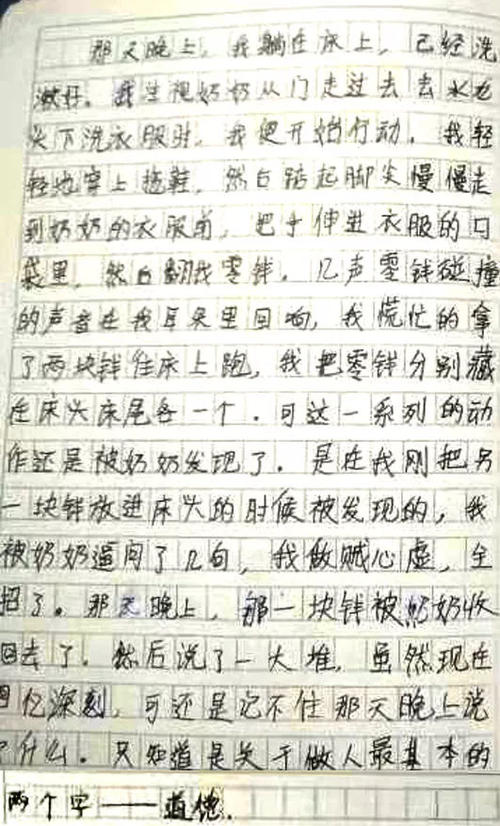 那天晚上，我躺在床上，已经洗
漱好。我生视奶奶从门走过去去水龙
头下洗衣服时，我便开始行动，我轻
轻地穿上拖鞋，然后踮起脚尖慢慢走
到奶奶的衣服前，把手伸进衣服的口
袋里，然后翻找零钱。几声零钱碰撞
的声音在我耳朵里回响，我慌忙的拿
了两块钱往床上跑，我把零钱分别藏
在床头床尾各一个．可这一系列的动
作还是被奶奶发现了．是在我刚把另
一块钱放进床头的时候被发现的，我
被奶奶逼问了几句，我做贼心虚，全
招了。那天晚上，那一块钱被奶奶收
回去了．然后说了一大堆，虽然现在
回忆深刻，可还是记不住那天晚上说
了什么．只知道是关于做人最基本的
两个字——道德．